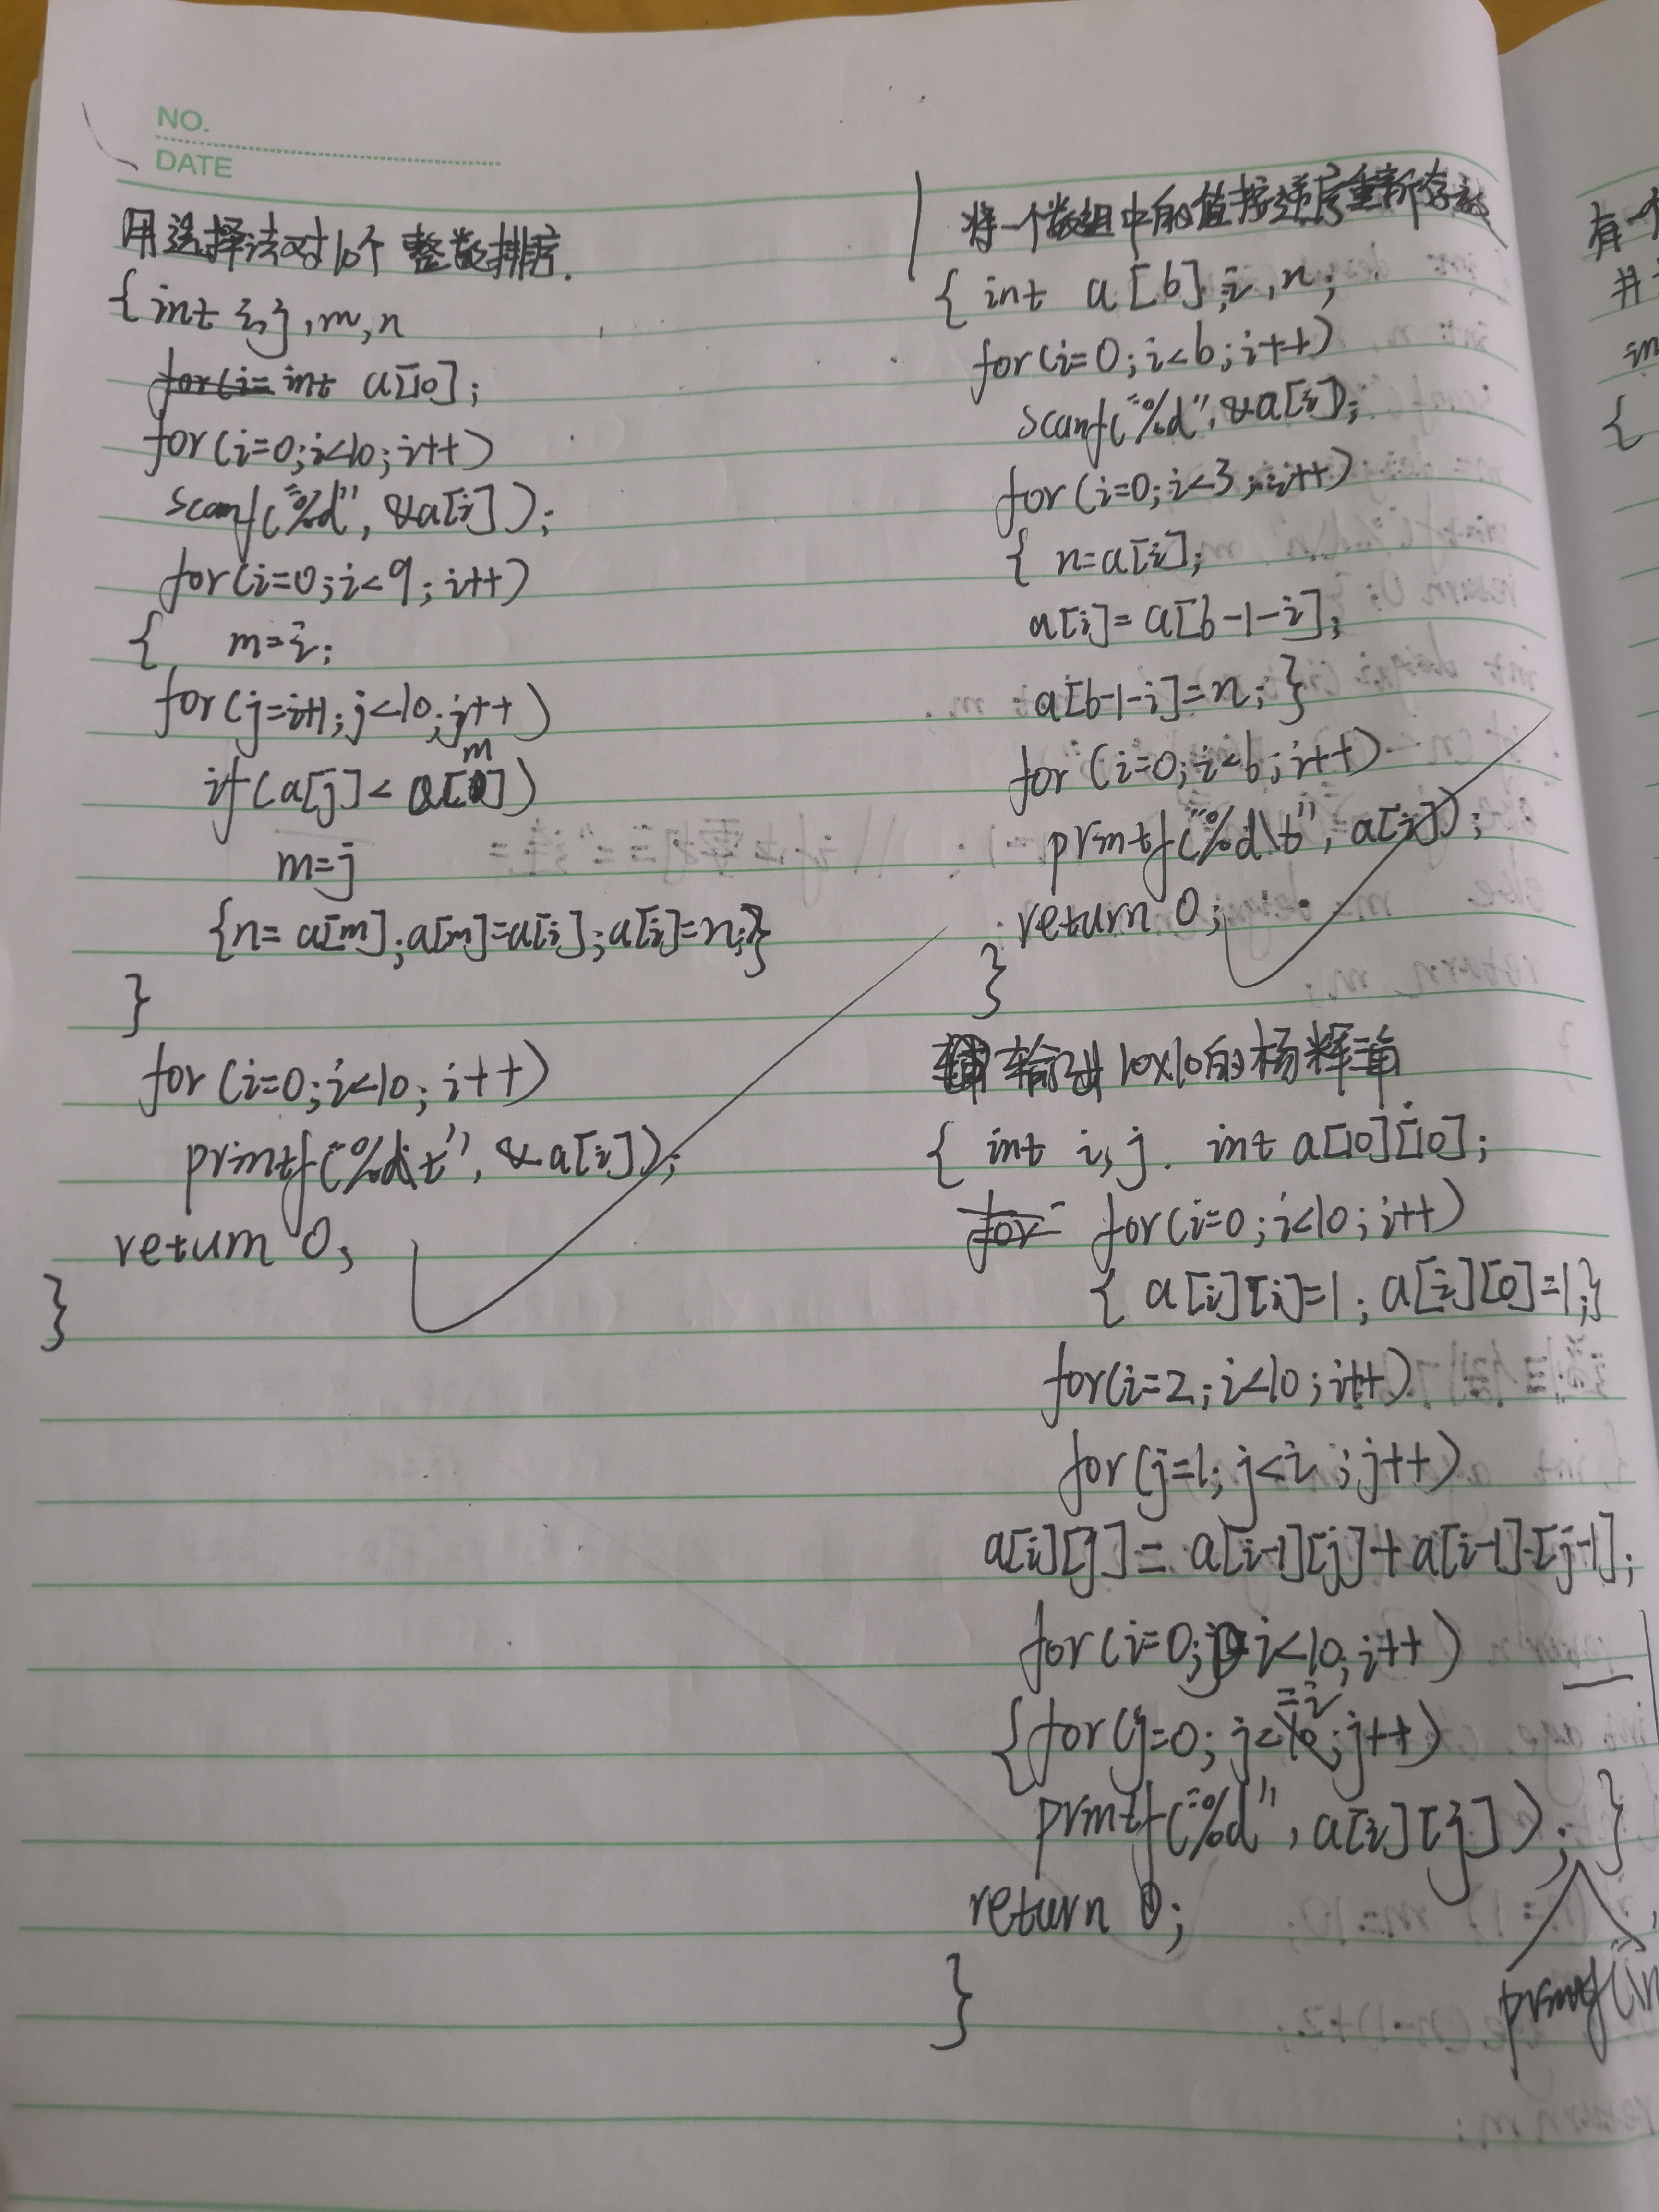 NO.
DATE
用选择法对10个整数排序.
{int i,j,m,n
int a[10];
for(i=0;i<10;i++)
scanf("%d",&a[i]);
for(i=0;i<9;i++)
{ m=i;
for(j=i+1;j<10;j++)
if(a[j]<a[m])
m=j
{n=a[m];a[m]=a[i];a[i]=n;}
}
for(i=0;i<10;i++)
printf("%d\t",&a[i]);
return 0;
}
将一个数组中的值按逆序重新存放
{int a[6],i,n;
for(i=0;i<6;i++)
scanf("%d",&a[i]);
for(i=0;i<3;i++)
{ n=a[i];
a[i]=a[6-1-i];
a[6-1-i]=n;}
for(i=0;i<6;i++)
printf("%d\t",a[i]);
return 0;
}
输出10x10的杨辉三角
{ int i,j. int a[10][10];
for(i=0;i<10;i++)
{ a[i][i]=1; a[i][0]=1;}
for(i=2;i<10;i++)
for(j=1;j<i;j++)
a[i][j]=a[i-1][j]+a[i-1][j-1];
for(i=0;i<10;i++)
{for(j=0;j<=i;j++)
printf("%d",a[i][j]);}
printf(\n
return 0;
}
有一个
并
in
{